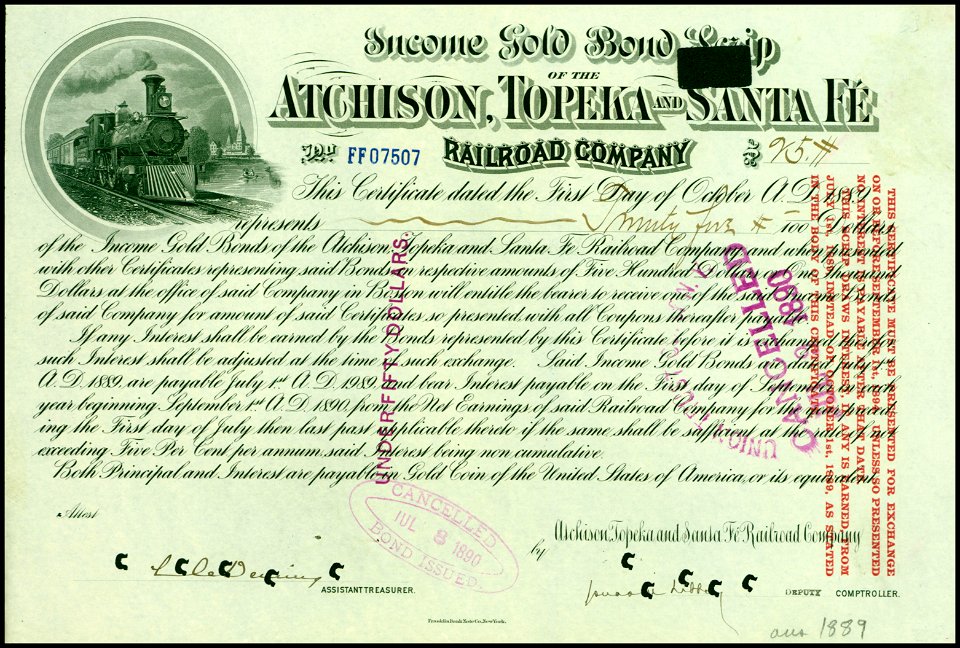 Income Gold Bond Scrip
OF THE
ATCHISON, TOPEKA AND SANTA FÉ
RAILROAD COMPANY
No. FF07507
25.#
This Certificate dated the First Day of October A.D. 1889
represents Twenty five # 100 Dollars
of the Income Gold Bonds of the Atchison, Topeka and Santa Fe Railroad Company and when presented
with other Certificates representing said Bonds in respective amounts of Five Hundred Dollars or One Thousand
Dollars at the office of said Company in Boston will entitle the bearer to receive one of the said Income Gold Bonds
of said Company for amount of said Certificates so presented, with all Coupons thereafter payable.
If any Interest shall be earned by the Bonds represented by this Certificate before it is exchanged therefor
such Interest shall be adjusted at the time of such exchange. Said Income Gold Bonds are dated July 1st
A.D. 1889, are payable July 1st A.D. 1989, and bear Interest payable on the First day of September in each
year beginning September 1st A.D. 1890, from the Net Earnings of said Railroad Company for the year preced-
ing the First day of July then last past applicable thereto if the same shall be sufficient at the rate of not
exceeding Five Per Cent per annum, said Interest being non cumulative.
Both Principal and Interest are payable in Gold Coin of the United States of America, or its equivalent.
Attest
Atchison, Topeka and Santa Fé Railroad Company
by
ASSISTANT TREASURER.
DEPUTY COMPTROLLER.
Franklin Bank Note Co. New York.
UNDER FIFTY DOLLARS.
CANCELLED
JUL 8 1890
BOND ISSUED.
CANCELLED
1890
UNION TRUST CO. N.Y.
THIS CERTIFICATE MUST BE PRESENTED FOR EXCHANGE
ON OR BEFORE SEPTEMBER 1st, 1894. UNLESS SO PRESENTED
NO INTEREST IS PAYABLE AFTER THAT DATE.
THIS SCRIP DRAWS INTEREST, IF ANY IS EARNED, FROM
JULY 1st, 1889, INSTEAD OF OCTOBER 1st, 1889, AS STATED
IN THE BODY OF THIS CERTIFICATE.
1889